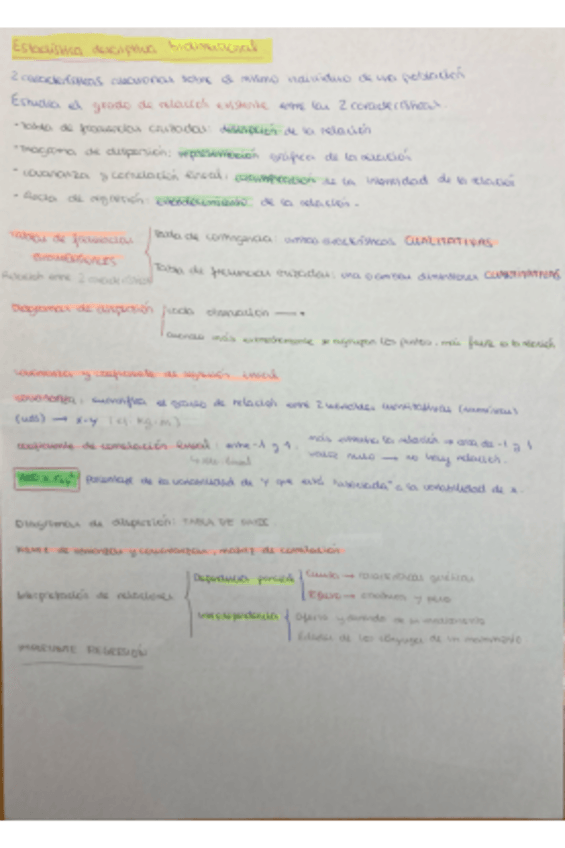 Estadística descriptiva bidimensional
2 características cuantitativas sobre el mismo individuo de una población
Estudia el grado de relación existente entre las 2 características.
- Tabla de frecuencias cruzadas: descripción de la relación
- Diagrama de dispersión: representación gráfica de la relación
- covarianza y correlación lineal: cuantificación de la intensidad de la relación
- Recta de regresión: de la relación.
Tablas de frecuencias bidimensionales
Relación entre 2 características
Tabla de contingencia: ambas características CUALITATIVAS
Tabla de frecuencias cruzadas: una o ambas dimensiones CUANTITATIVAS
Diagramas de dispersión
cada observación → •
cuanto más estrechamente se agrupen los puntos, más fuerte es la relación
covarianza y coeficiente de regresión lineal
covarianza: cuantifica el grado de relación entre 2 variables cuantitativas (numéricas)
(uds) → x·y (ej. kg·m)
coeficiente de correlación lineal: entre -1 y 1. más estrecha la relación → cerca de -1 y 1
valor nulo → no hay relación.
Porcentaje de la variabilidad de Y que está "asociada" a la variabilidad de x.
Diagramas de dispersión: TABLA DE
Matriz de varianzas y covarianzas, matriz de correlación
Interpretación de relaciones
Dependencia parcial
Interdependencia
Edades de los cónyuges de un matrimonio
REGRESIÓN